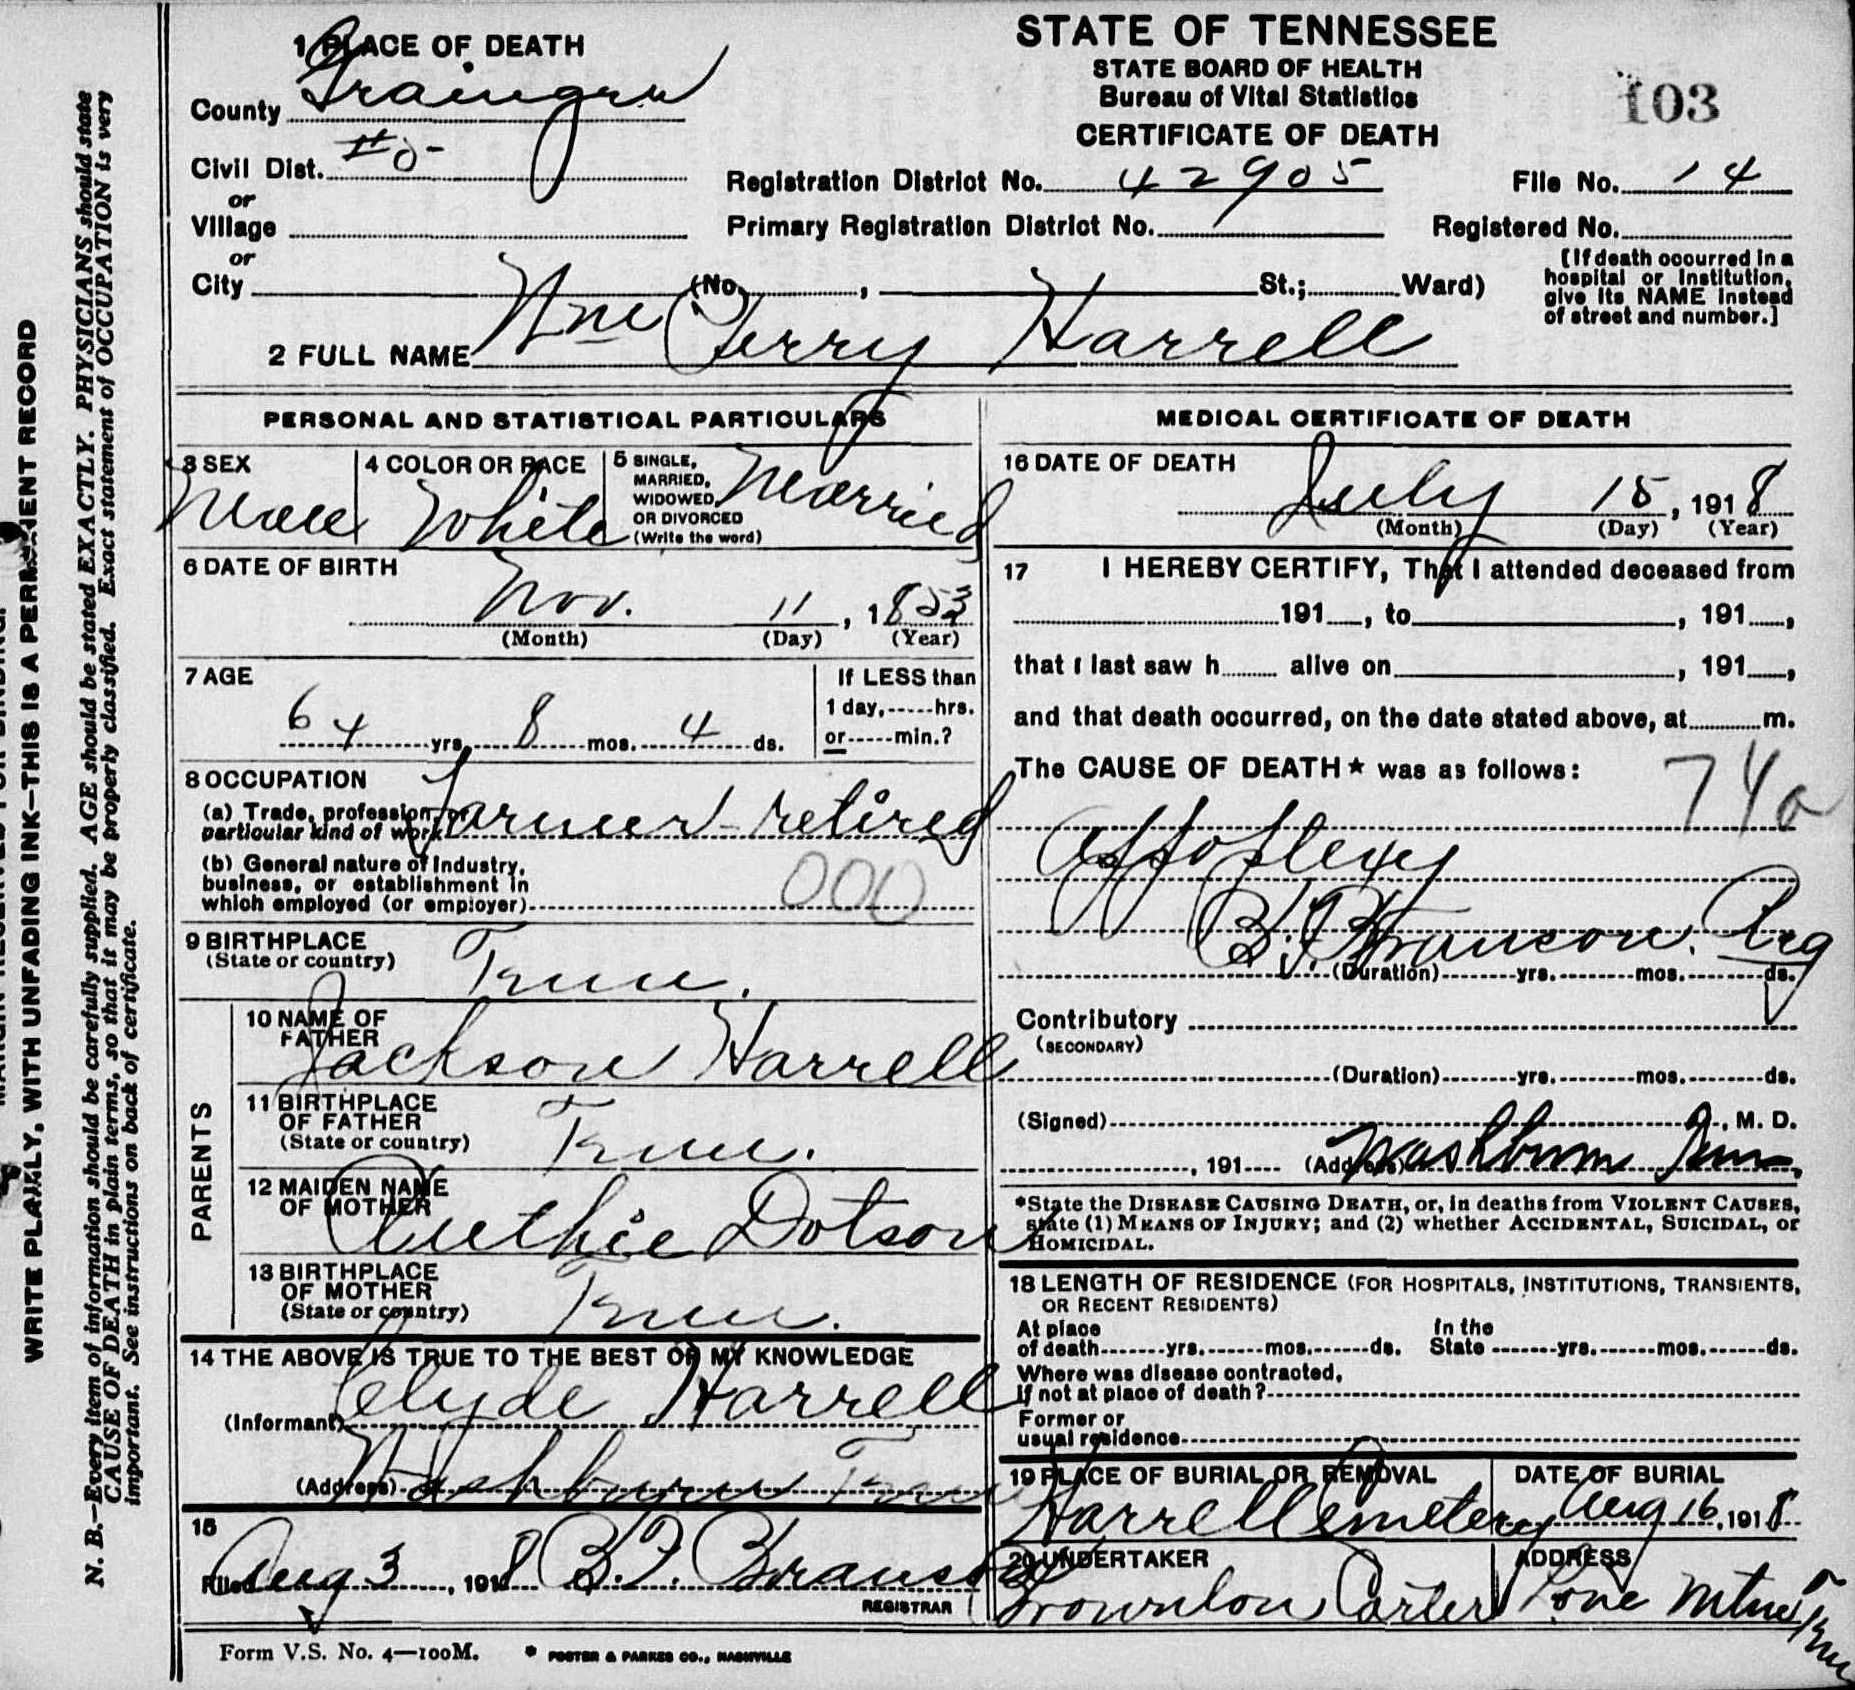 STATE OF TENNESSEE
STATE BOARD OF HEALTH
Bureau of Vital Statistics
CERTIFICATE OF DEATH
103
1 PLACE OF DEATH
County Grainger
Civil Dist. #5-
or
Village
or
City (No. , St.; Ward)
Registration District No. 42905
File No. 14
Primary Registration District No.
Registered No.
[If death occurred in a
hospital or institution,
give its NAME instead
of street and number.]
2 FULL NAME Wm Perry Harrell
PERSONAL AND STATISTICAL PARTICULARS
3 SEX
Male
4 COLOR OR RACE
White
5 SINGLE,
MARRIED,
WIDOWED,
OR DIVORCED
(Write the word)
Married
6 DATE OF BIRTH
Nov. 11, 1853
(Month) (Day) (Year)
7 AGE
64 yrs. 8 mos. 4 ds.
If LESS than
1 day, hrs.
or min.?
8 OCCUPATION
(a) Trade, profession, or
particular kind of work Farmer - retired
(b) General nature of Industry,
business, or establishment in
which employed (or employer)
000
9 BIRTHPLACE
(State or country)
Tenn.
PARENTS
10 NAME OF
FATHER
Jackson Harrell
11 BIRTHPLACE
OF FATHER
(State or country)
Tenn.
12 MAIDEN NAME
OF MOTHER
Ruthie Dotson
13 BIRTHPLACE
OF MOTHER
(State or country)
Tenn.
14 THE ABOVE IS TRUE TO THE BEST OF MY KNOWLEDGE
(Informant) Clyde Harrell
(Address) Washburn Tenn
15
Filed Aug 3, 1918 B.F. Branson
REGISTRAR
MEDICAL CERTIFICATE OF DEATH
16 DATE OF DEATH
July 15, 1918
(Month) (Day) (Year)
17 I HEREBY CERTIFY, That I attended deceased from
191 , to , 191 ,
that I last saw h alive on , 191 ,
and that death occurred, on the date stated above, at m.
The CAUSE OF DEATH* was as follows:
74a
Appoplexy
B.F. Branson. Reg
(Duration) yrs. mos. ds.
Contributory
(SECONDARY)
(Duration) yrs. mos. ds.
(Signed) , M. D.
, 191 (Address) Washburn Tenn.
*State the DISEASE CAUSING DEATH, or, in deaths from VIOLENT CAUSES,
state (1) MEANS OF INJURY; and (2) whether ACCIDENTAL, SUICIDAL, or
HOMICIDAL.
18 LENGTH OF RESIDENCE (FOR HOSPITALS, INSTITUTIONS, TRANSIENTS,
OR RECENT RESIDENTS)
At place
of death yrs. mos. ds.
In the
State yrs. mos. ds.
Where was disease contracted,
if not at place of death?
Former or
usual residence
19 PLACE OF BURIAL OR REMOVAL
Harrell Cemetery
DATE OF BURIAL
Aug 16, 1918
20 UNDERTAKER
Brownlow Carter
ADDRESS
Lone Mtn Tenn
Form V.S. No. 4—100M.
* FOSTER & PARKES CO., NASHVILLE
WRITE PLAINLY, WITH UNFADING INK—THIS IS A PERMANENT RECORD
N. B.—Every item of information should be carefully supplied. AGE should be stated EXACTLY. PHYSICIANS should state
CAUSE OF DEATH in plain terms, so that it may be properly classified. Exact statement of OCCUPATION is very
important. See instructions on back of certificate.